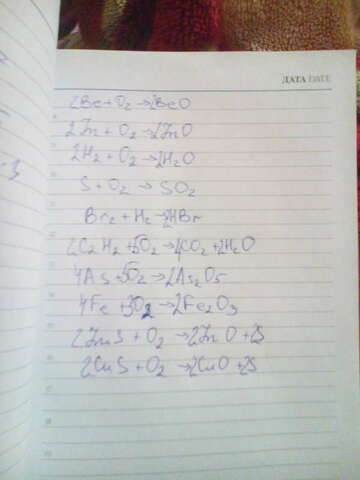 ДАТА DATE
2Be + O2 → 2BeO
2Zn + O2 → 2ZnO
2H2 + O2 → 2H2O
S + O2 → SO2
Br2 + H2 → 2HBr
2C2H2 + 5O2 → 4CO2 + 2H2O
4As + 5O2 → 2As2O5
4Fe + 3O2 → 2Fe2O3
2ZnS + O2 → 2ZnO + 2S
2CuS + O2 → 2CuO + 2S